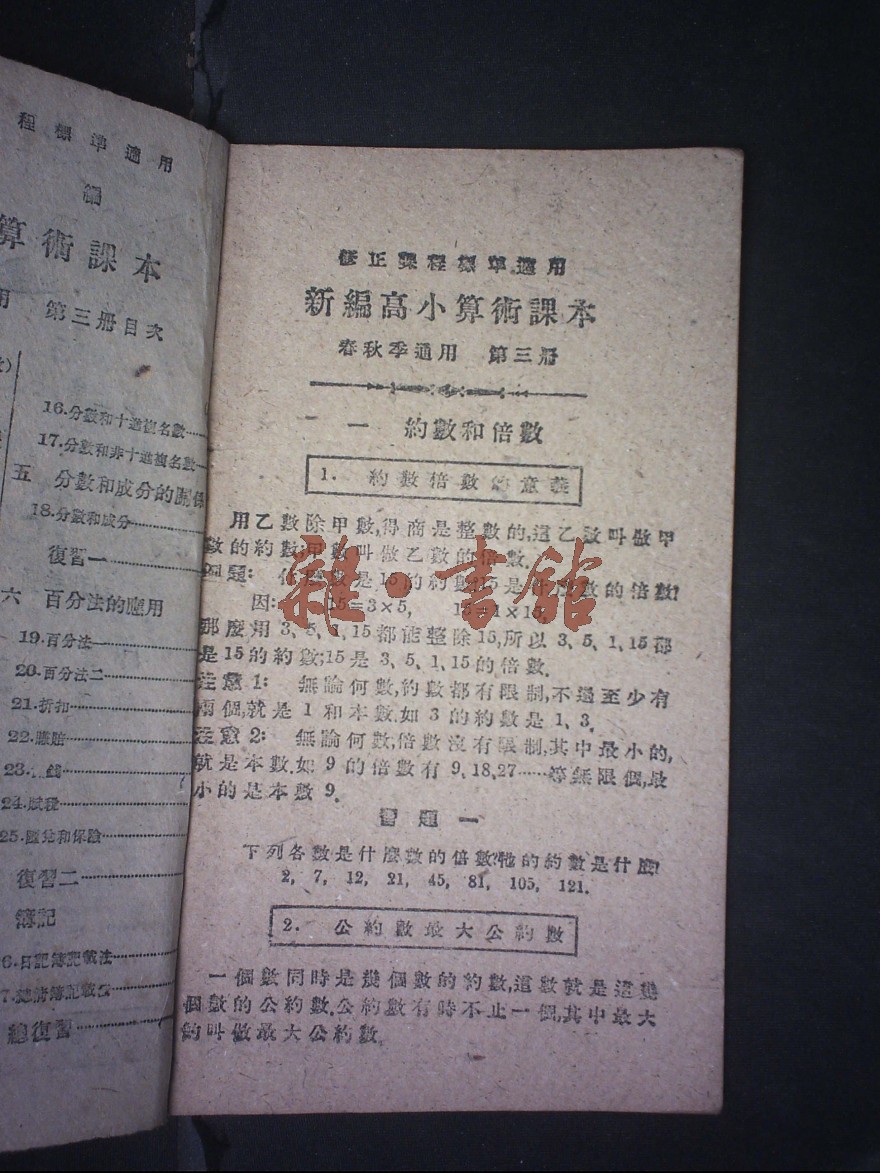 程標準適用
編
算術課本
用 第三册目次
16.分數和十進複名數……
17.分數和非十進複名數…
五 分數和成分的關係
18.分數和成分……
復習一……
六 百分法的應用
19.百分法……
20.百分法二……
21.折扣……
22.賺賠……
23.
24.賦稅……
25.匯兌和保險……
復習二……
簿記
6.日記簿記載法……
7.總清簿記載法……
總復習……
修正課程標準適用
新編高小算術課本
春秋季通用 第三册
一 約數和倍數
1. 約數倍數的意義
用乙數除甲數,得商是整數的,這乙數叫做甲
數的約數;甲數叫做乙數的倍數.
例題: 什麼數是15的約數?15是什麼數的倍數?
因: 15=3×5, 15=1×15,
那麼用 3、5、1、15都能整除15,所以 3、5、1、15都
是15的約數;15是 3、5、1、15的倍數.
注意 1: 無論何數,約數都有限制,不過至少有
兩個,就是 1 和本數.如 3 的約數是 1、3.
注意 2: 無論何數,倍數沒有限制,其中最小的,
就是本數.如 9 的倍數有 9、18、27……等無限個,最
小的是本數 9.
習題一
下列各數是什麼數的倍數?牠的約數是什麼?
2, 7, 12, 21, 45, 81, 105, 121.
2. 公約數最大公約數
一個數同時是幾個數的約數,這數就是這幾
個數的公約數.公約數有時不止一個,其中最大
的叫做最大公約數.
雜·書館